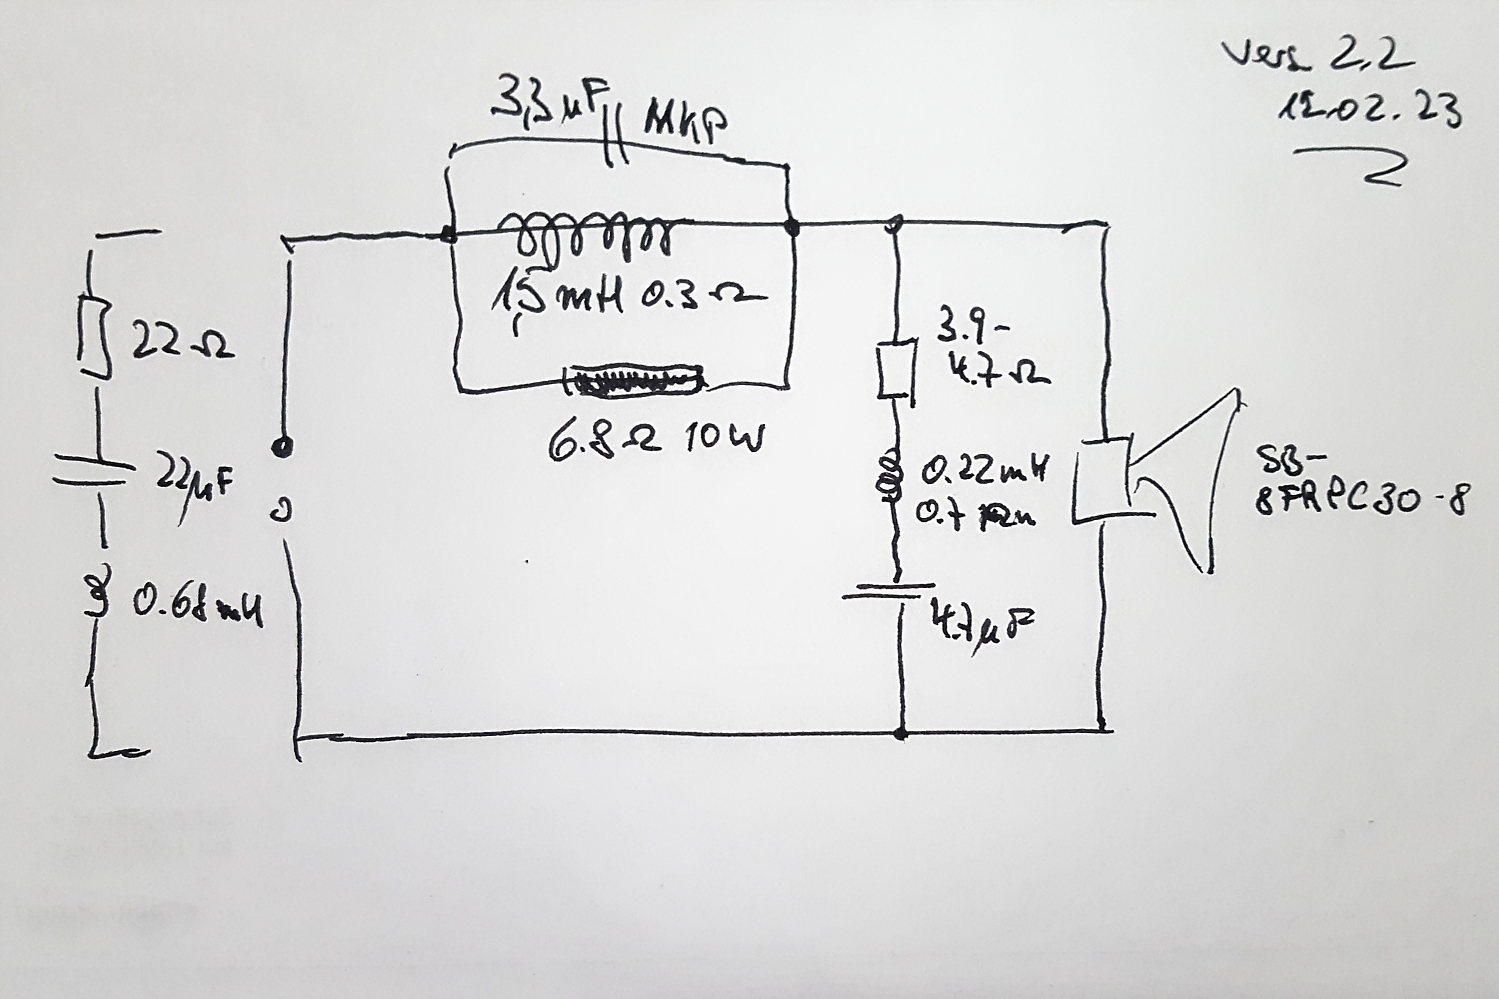 Vers 2,2
12.02.23
3,3 µF MKP
1,5 mH 0.3 Ω
22 Ω
6.8 Ω 10W
3.9-
4.7 Ω
22µF
0.22mH
0.7
SB-
8FRPC30-8
0.68mH
4.7µF